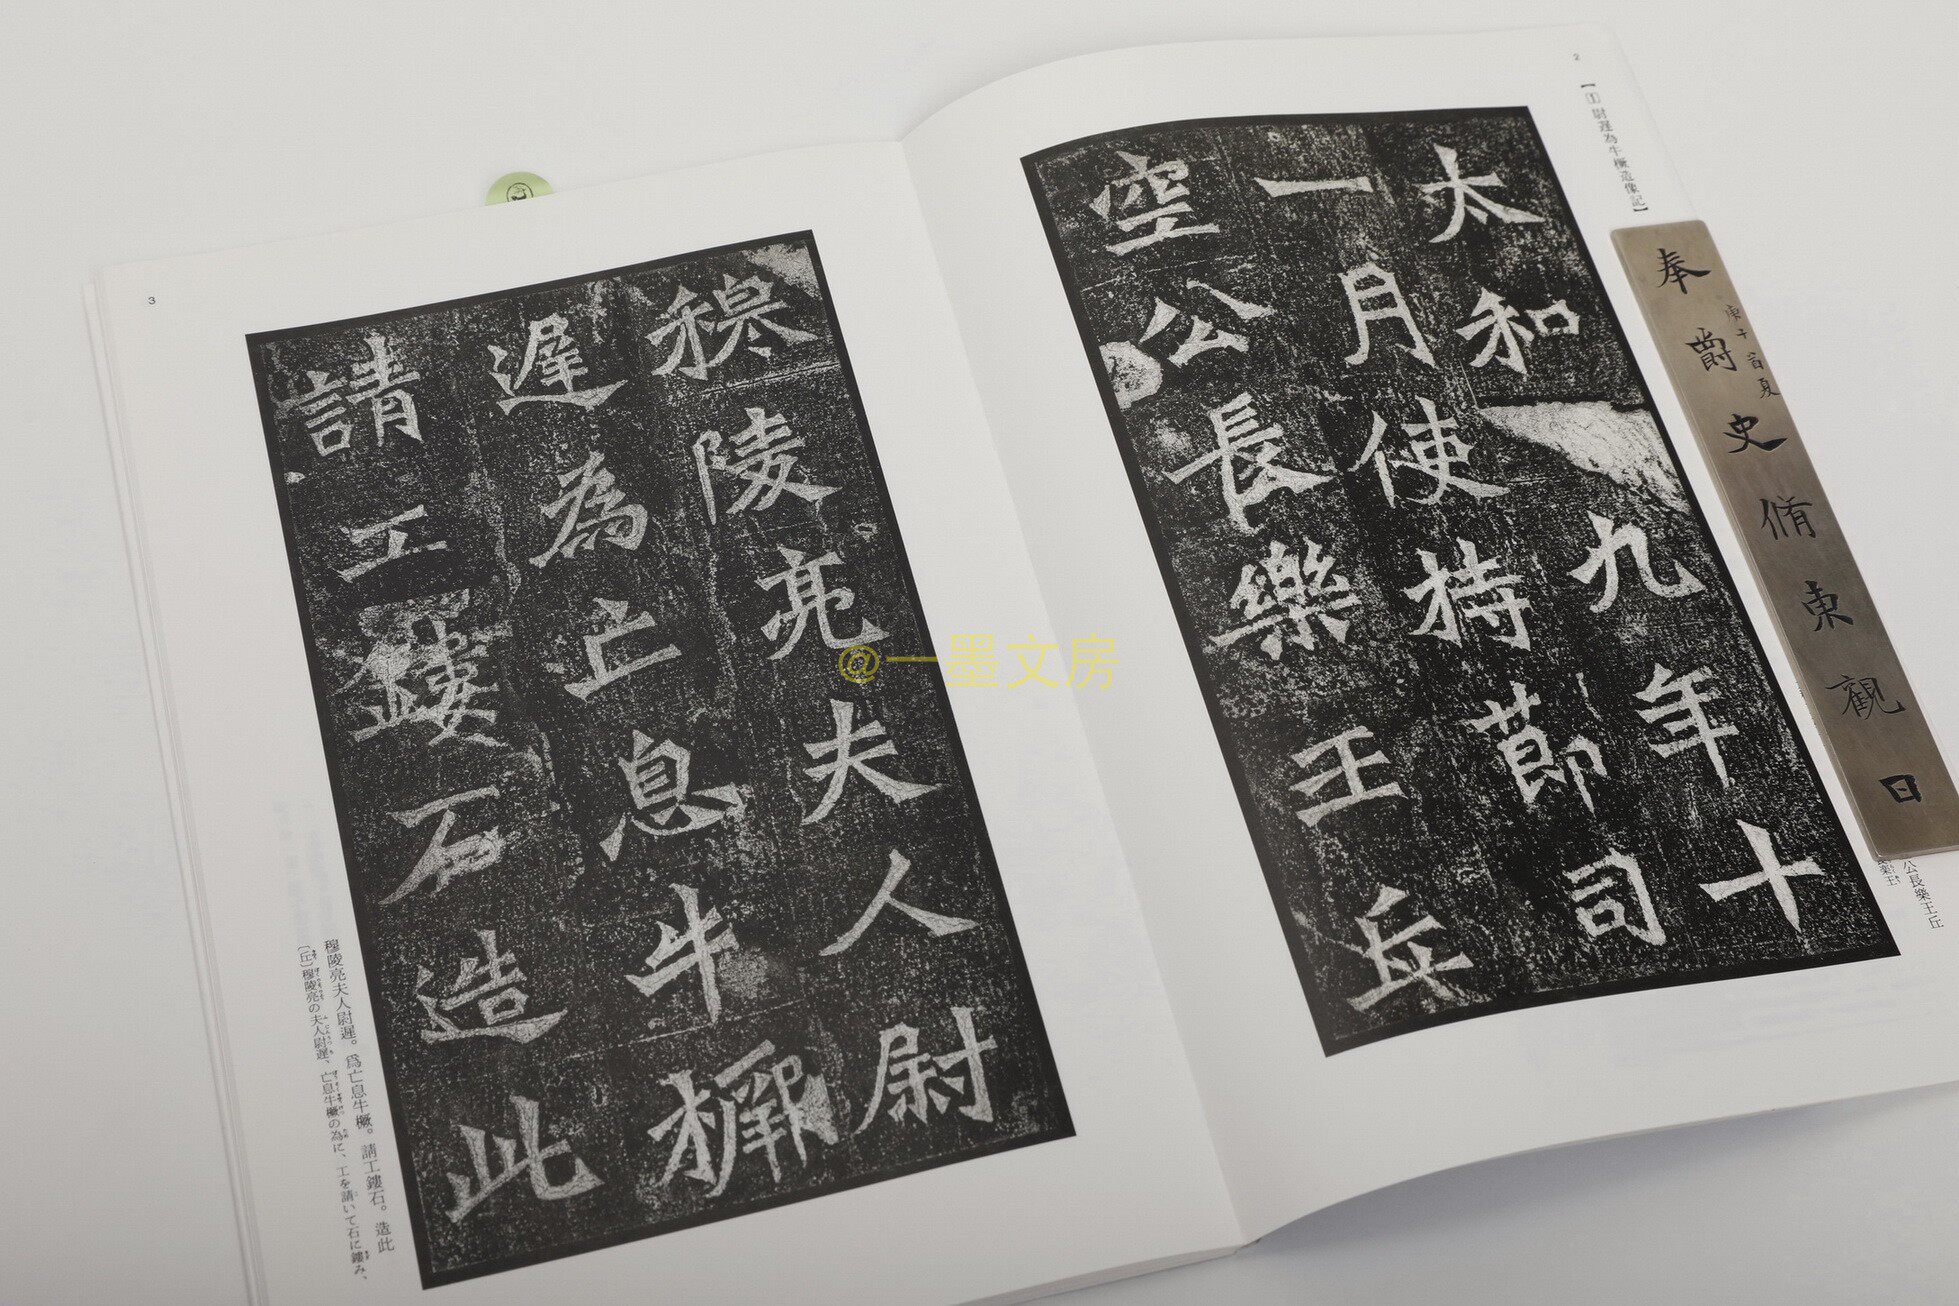 2
【1 尉遲為牛橛造像記】
太和九年十
一月使持節司
空公長樂王丘
公長樂王丘
樂王
奉爵史脩東觀日
夏
3
穆陵亮夫人尉
遲為亡息牛橛
請工鏤石造此
穆陵亮夫人尉遲。為亡息牛橛。請工鏤石。造此
〔丘〕穆陵亮の夫人尉遲、亡息牛橛の為に、工を請いて石に鏤み、
@一墨文房